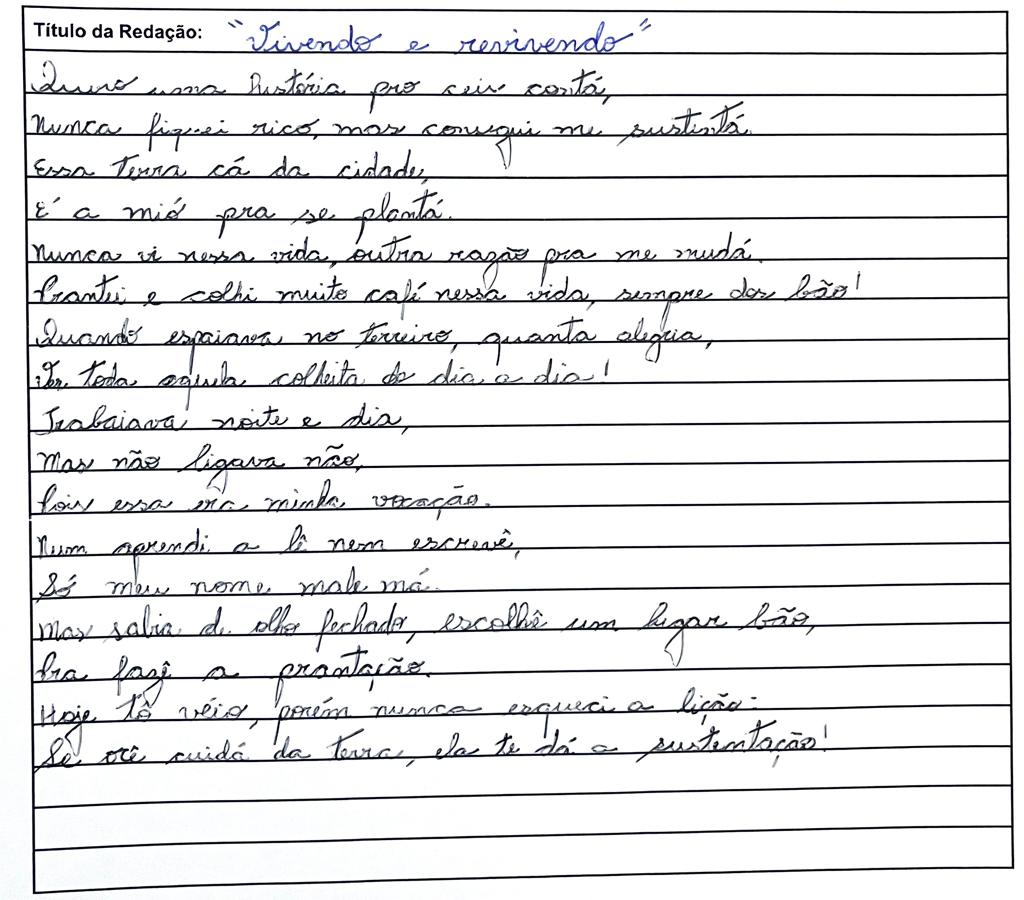 Título da Redação: "Vivendo e revivendo"
Quero uma história pro ceis contá,
Nunca fiquei rico, mas consegui me sustentá.
Essa terra cá da cidade,
É a mió pra se plantá.
Nunca vi nessa vida, outra razão pra me mudá.
Prantei e colhi muito café nessa vida, sempre dos bão!
Quando espaiava no terreiro, quanta alegria,
Ver toda aquela colheita do dia a dia!
Trabaiava noite e dia,
Mas não ligava não,
Pois essa era minha vocação.
Num aprendi a lê nem escrevê,
Só meu nome, male má.
Mas sabia de olho fechado, escolhê um lugar bão,
Pra fazê a prantação.
Hoje tô véio, porém nunca esqueci a lição:
Se ocê cuidá da terra, ela te dá a sustentação!